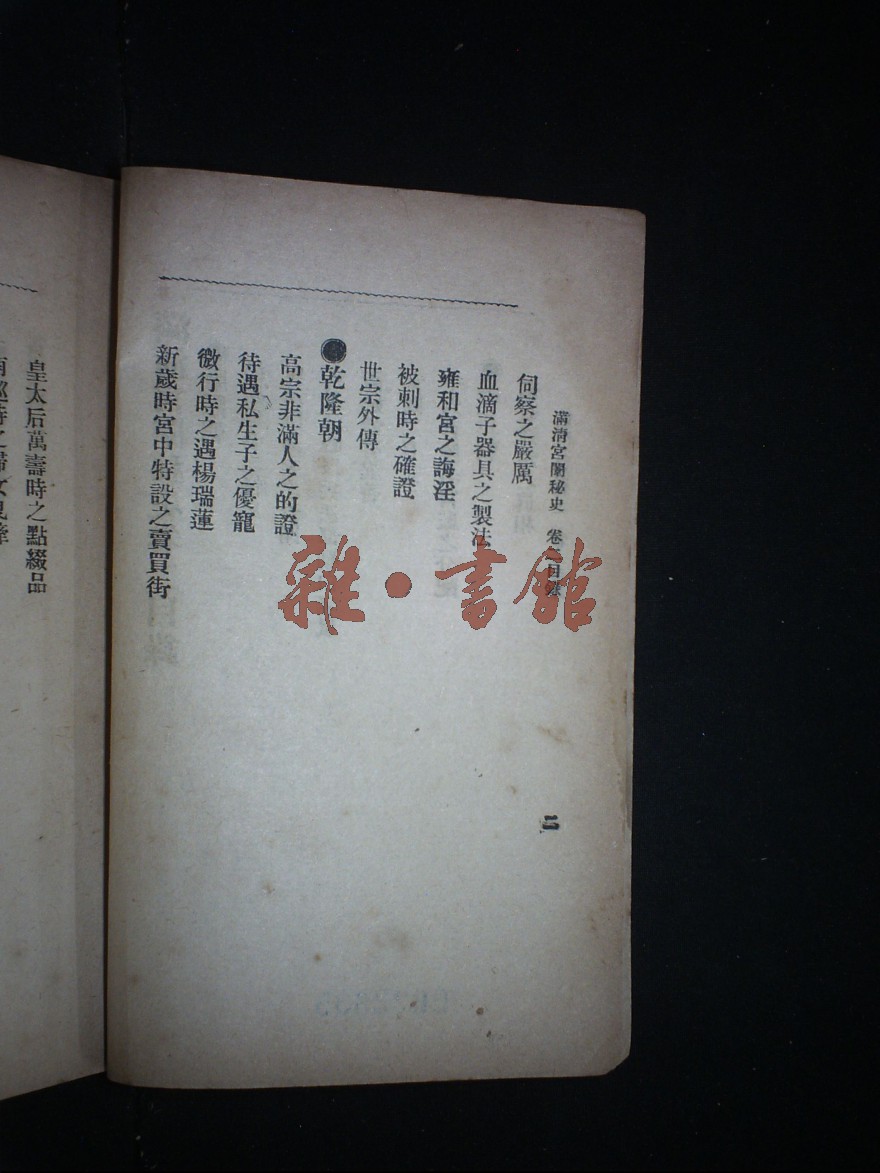 滿淸宮闈秘史 卷 目
伺察之嚴厲
血滴子器具之製法
雍和宮之誨淫
被刺時之確證
世宗外傳
●乾隆朝
高宗非滿人之的證
待遇私生子之優寵
微行時之遇楊瑞蓮
新歲時宮中特設之賣買街
二
皇太后萬壽時之點綴品
南巡時之婦女
雜·書館